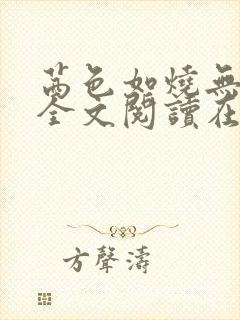 茜色如燒無
全文閱讀在
方聲濤